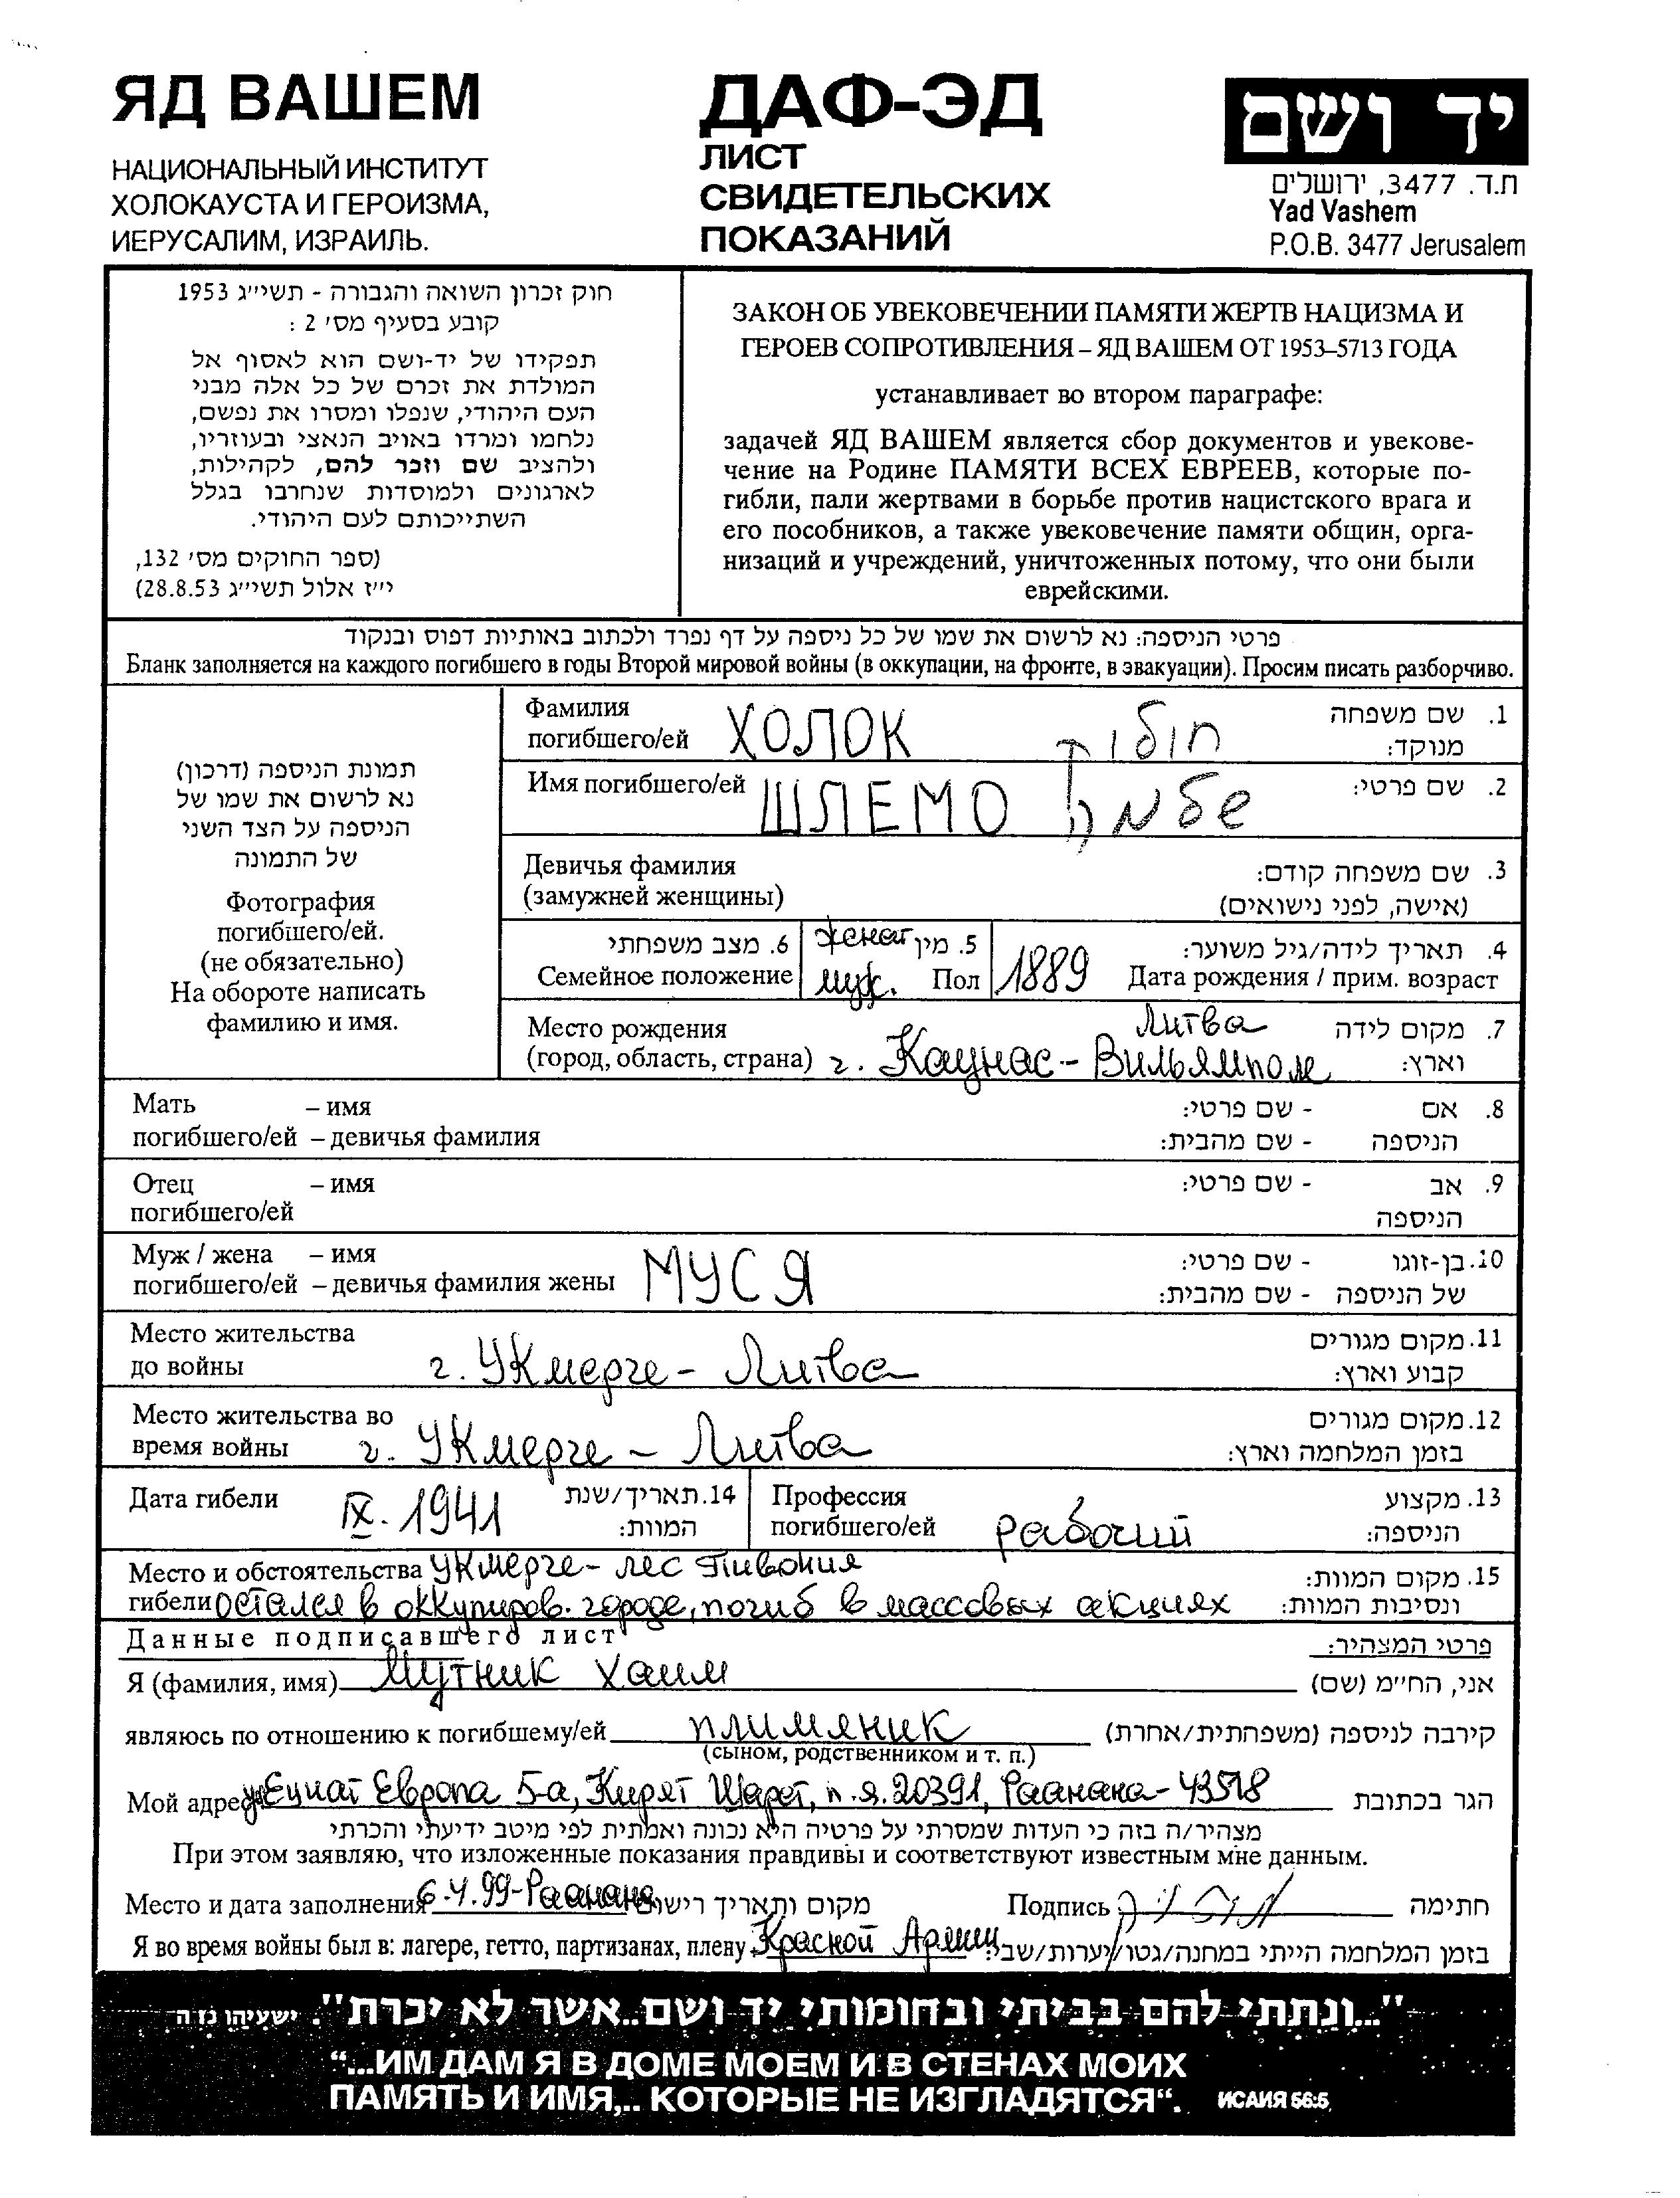 ЯД ВАШЕМ
НАЦИОНАЛЬНЫЙ ИНСТИТУТ
ХОЛОКАУСТА И ГЕРОИЗМА,
ИЕРУСАЛИМ, ИЗРАИЛЬ.
ДАФ-ЭД
ЛИСТ
СВИДЕТЕЛЬСКИХ
ПОКАЗАНИЙ
יד ושם
ת.ד. 3477, ירושלים
Yad Vashem
P.O.B. 3477 Jerusalem
חוק זכרון השואה והגבורה - תשי״ג 1953
קובע בסעיף מס׳ 2 :
תפקידו של יד-ושם הוא לאסוף אל
המולדת את זכרם של כל אלה מבני
העם היהודי, שנפלו ומסרו את נפשם,
נלחמו ומרדו באויב הנאצי ובעוזריו,
ולהציב שם וזכר להם, לקהילות,
לארגונים ולמוסדות שנחרבו בגלל
השתייכותם לעם היהודי.
(ספר החוקים מס׳ 132,
י״ז אלול תשי״ג 28.8.53)
ЗАКОН ОБ УВЕКОВЕЧЕНИИ ПАМЯТИ ЖЕРТВ НАЦИЗМА И
ГЕРОЕВ СОПРОТИВЛЕНИЯ – ЯД ВАШЕМ ОТ 1953–5713 ГОДА
устанавливает во втором параграфе:
задачей ЯД ВАШЕМ является сбор документов и увекове-
чение на Родине ПАМЯТИ ВСЕХ ЕВРЕЕВ, которые по-
гибли, пали жертвами в борьбе против нацистского врага и
его пособников, а также увековечение памяти общин, орга-
низаций и учреждений, уничтоженных потому, что они были
еврейскими.
פרטי הניספה: נא לרשום את שמו של כל ניספה על דף נפרד ולכתוב באותיות דפוס ובנקוד
Бланк заполняется на каждого погибшего в годы Второй мировой войны (в оккупации, на фронте, в эвакуации). Просим писать разборчиво.
תמונת הניספה (דרכון)
נא לרשום את שמו של
הניספה על הצד השני
של התמונה
Фотография
погибшего/ей.
(не обязательно)
На обороте написать
фамилию и имя.
Фамилия
погибшего/ей ХОЛОК חולוק
1. שם משפחה
מנוקד:
Имя погибшего/ей ШЛЕМО שלמה
2. שם פרטי:
Девичья фамилия
(замужней женщины)
3. שם משפחה קודם:
(אישה, לפני נישואים)
6. מצב משפחתי
Семейное положение
женат 5. מין
муж. Пол
1889
4. תאריך לידה/גיל משוער:
Дата рождения / прим. возраст
Место рождения Литва
(город, область, страна) г. Каунас - Вильямполе
7. מקום לידה
וארץ:
Мать – имя
погибшего/ей – девичья фамилия
8. אם - שם פרטי:
הניספה - שם מהבית:
Отец – имя
погибшего/ей
9. אב - שם פרטי:
הניספה
Муж / жена – имя
погибшего/ей – девичья фамилия жены МУСЯ
10. בן-זוגו - שם פרטי:
של הניספה - שם מהבית:
Место жительства
до войны г. Укмерге - Литва
11. מקום מגורים
קבוע וארץ:
Место жительства во
время войны г. Укмерге - Литва
12. מקום מגורים
בזמן המלחמה וארץ:
Дата гибели IX. 1941
14. תאריך/שנת
המוות:
Профессия
погибшего/ей рабочий
13. מקצוע
הניספה:
Место и обстоятельства Укмерге - лес Пивония
гибели остался в оккупиров. городе, погиб в массовых акциях
15. מקום המוות:
ונסיבות המוות:
Данные подписавшего лист
פרטי המצהיר:
Я (фамилия, имя) Мутник Хаим אני, הח״מ (שם)
являюсь по отношению к погибшему/ей плимяник קירבה לניספה (משפחתית/אחרת)
(сыном, родственником и т. п.)
Мой адрес Ециат Европа 5-а, Кирят Шарет, п.я. 20391, Раанана - 43518 הגר בכתובת
מצהיר/ה בזה כי העדות שמסרתי על פרטיה היא נכונה ואמתית לפי מיטב ידיעתי והכרתי
При этом заявляю, что изложенные показания правдивы и соответствуют известным мне данным.
Место и дата заполнения 6.4.99 - Раанана מקום ותאריך רישום Подпись חתימה
Я во время войны был в: лагере, гетто, партизанах, плену Красной Армии בזמן המלחמה הייתי במחנה/גטו/יערות/שבי:
"...ונתתי להם בביתי ובחומותי יד ושם..אשר לא יכרת". ישעיהו נו ה
“...ИМ ДАМ Я В ДОМЕ МОЕМ И В СТЕНАХ МОИХ
ПАМЯТЬ И ИМЯ,.. КОТОРЫЕ НЕ ИЗГЛАДЯТСЯ“. ИСАИЯ 56:5